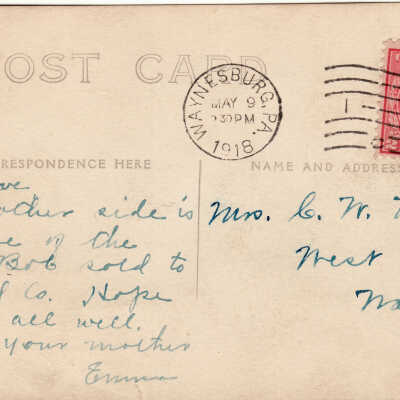 POST CARD
WAYNESBURG, PA.
MAY 9
30 PM
1918
RRESPONDENCE HERE
NAME AND ADDRESS
ve
other side is
e of the
Bob sold to
Co. Hope
all well.
your mother
Emma
Mrs. C. W.
West